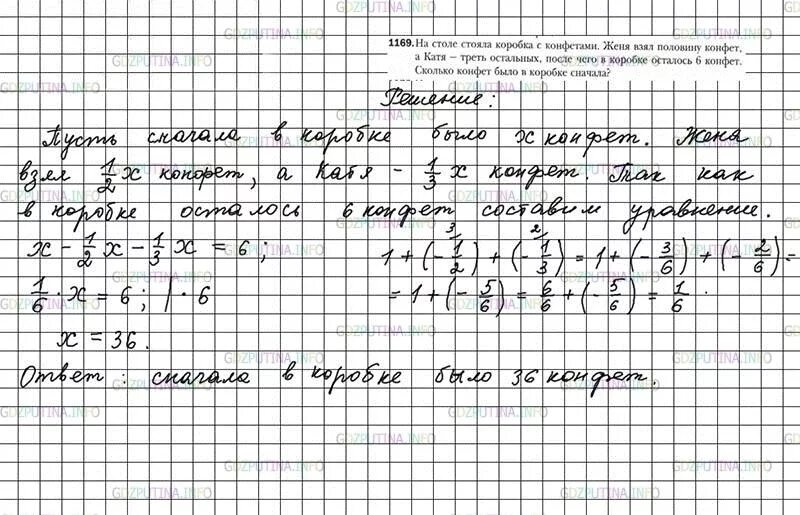 1169. На столе стояла коробка с конфетами. Женя взял половину конфет,
а Катя – треть остальных, после чего в коробке осталось 6 конфет.
Сколько конфет было в коробке сначала?
Решение:
Пусть сначала в коробке было x конфет. Женя
взял 1/2 x конфет, а Катя - 1/3 x конфет. Так как
в коробке осталось 6 конфет составим уравнение.
x - 1/2 x - 1/3 x = 6;
1/6 · x = 6; | · 6
x = 36.
1 + (- 1/2) + (- 1/3) = 1 + (- 3/6) + (- 2/6) =
= 1 + (- 5/6) = 6/6 + (- 5/6) = 1/6 .
Ответ: сначала в коробке было 36 конфет.
GDZPUTINA.INFO